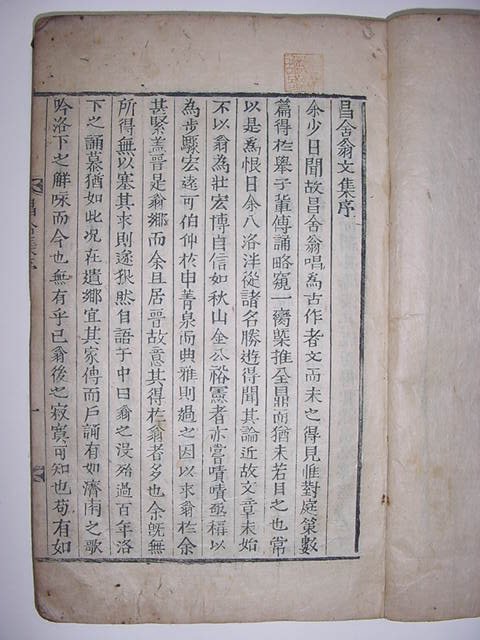 昌舍翁文集序
余少日聞故昌舍翁唱為古作者文而未之得見惟對庭策數
篇得於舉子輩傳誦略窺一臠槩推全鼎而猶未若目之也常
以是為恨日余入洛泮從諸名勝遊得聞其論近故文章未始
不以翁為壯宏博自信如秋山金公裕憲者亦嘗嘖嘖亟稱以
為步驟宏遠可伯仲於申菁泉而典雅則過之因以求翁於余
甚緊盖晉是翁鄉而余且居晉故意其得於翁者多也余旣無
所得無以塞其求則遂狀然自語于中曰翁之沒殆過百年洛
下之誦慕猶如此况在遺鄉宜其家傳而戶誦有如濟南之歌
吟洛下之解咏而今也無有乎已翁後之寂寞可知也苟有如
昌舍集序
一